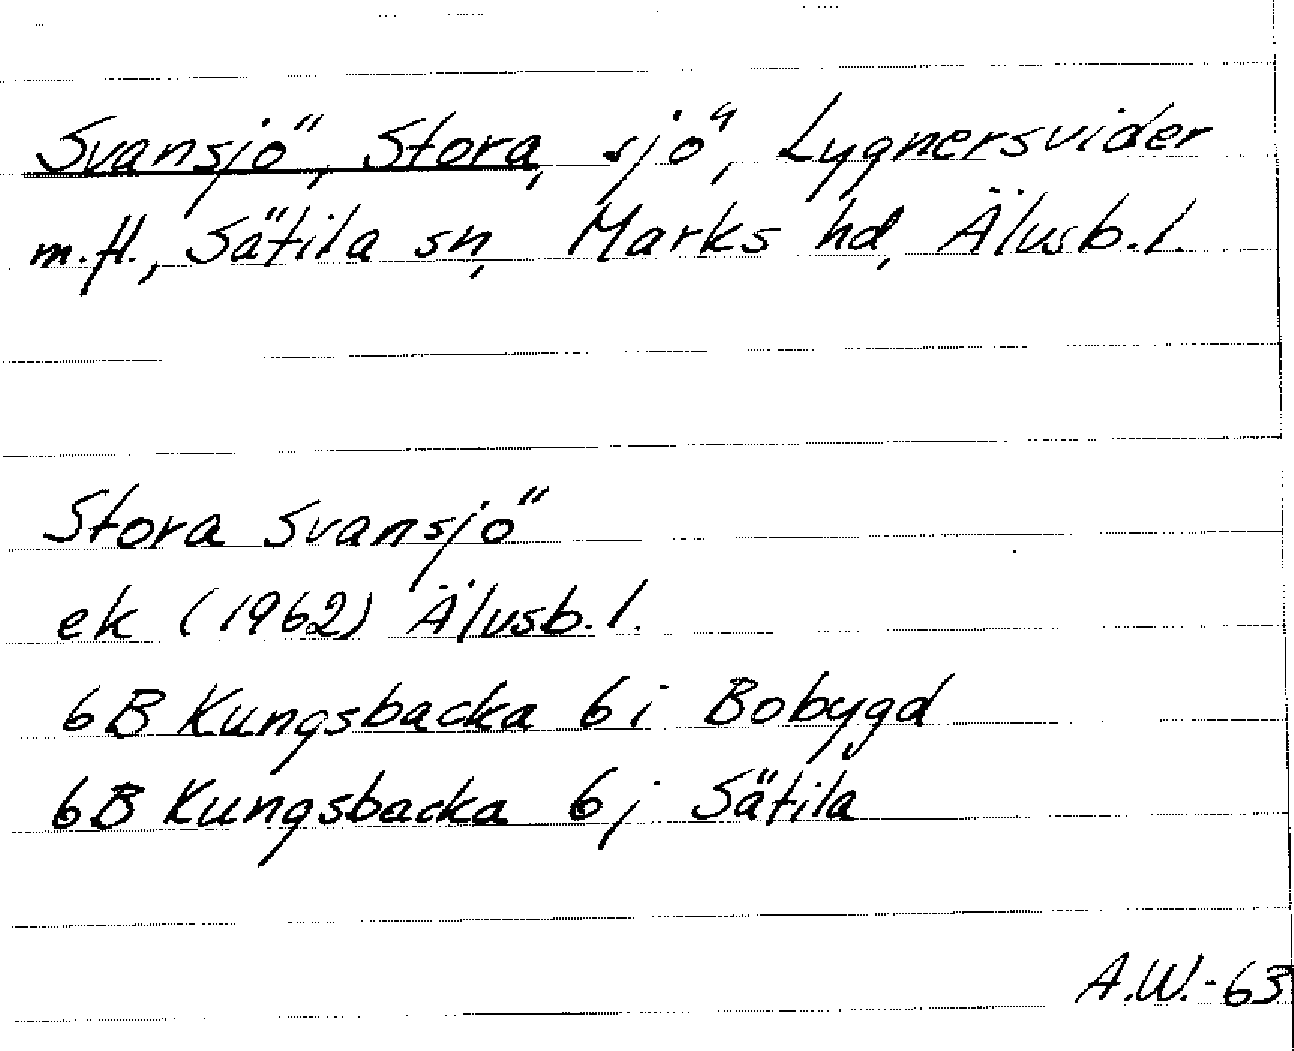 Svansjö, Stora, sjö, Lygnersvider
m.fl., Sätila sn, Marks hd, Älvsb.l.
Stora Svansjö
ek (1962) Älvsb.l.
6B Kungsbacka 6i Bobygd
6B Kungsbacka 6j Sätila
A.W.-63